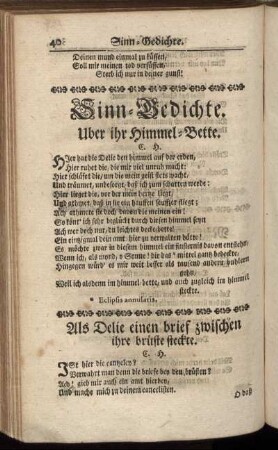 408 Sinn-Gedichte.
Deinen mund einmal zu küssen,
Soll mir meinen tod versüssen,
Sterb ich nur in deiner gunst!
Sinn-Gedichte.
Uber ihr Himmel-Bette.
C. H.
Hier hat die Delie den himmel auf der erden,
Hier ruhet die, die mir viel unruh macht;
Hier schläfet die, um die mein geist stets wacht,
Und träumet, unbesorgt, daß ich zum schatten werde:
Hier lieget die, vor der mein hertze liegt,
Und athmet, daß in sie ein hauffen seufzer fliegt;
Ach! athmete sie doch davon bey meinen ein!
So könt' ich sehr beglückt durch diesen himmel seyn
Ach wer doch nur, du leichtes decke-bette!
Ein eintzigmal dein amt hier zu verwalten hätte!
Es möchte zwar in diesem himmel ein finsternis davon entstehen,
Wenn ich, als mond, * Sonne! dir das * mittel gantz bedeckte,
Hingegen würd' es mir weit besser als tausend andern frühlern
gehn,
Weil ich alsdenn im himmel bette, und auch zugleich im himmel
steckte.
* Eclipsis annularis.
Als Delie einen brief zwischen
ihre brüste steckte.
C. H.
Ist hier die cantzeley?
Verwahrt man denn die briefe bey den brüsten?
Ach! gieb mir auch ein amt hierbey,
Und mache mich zu deinem cancellisten.
O daß